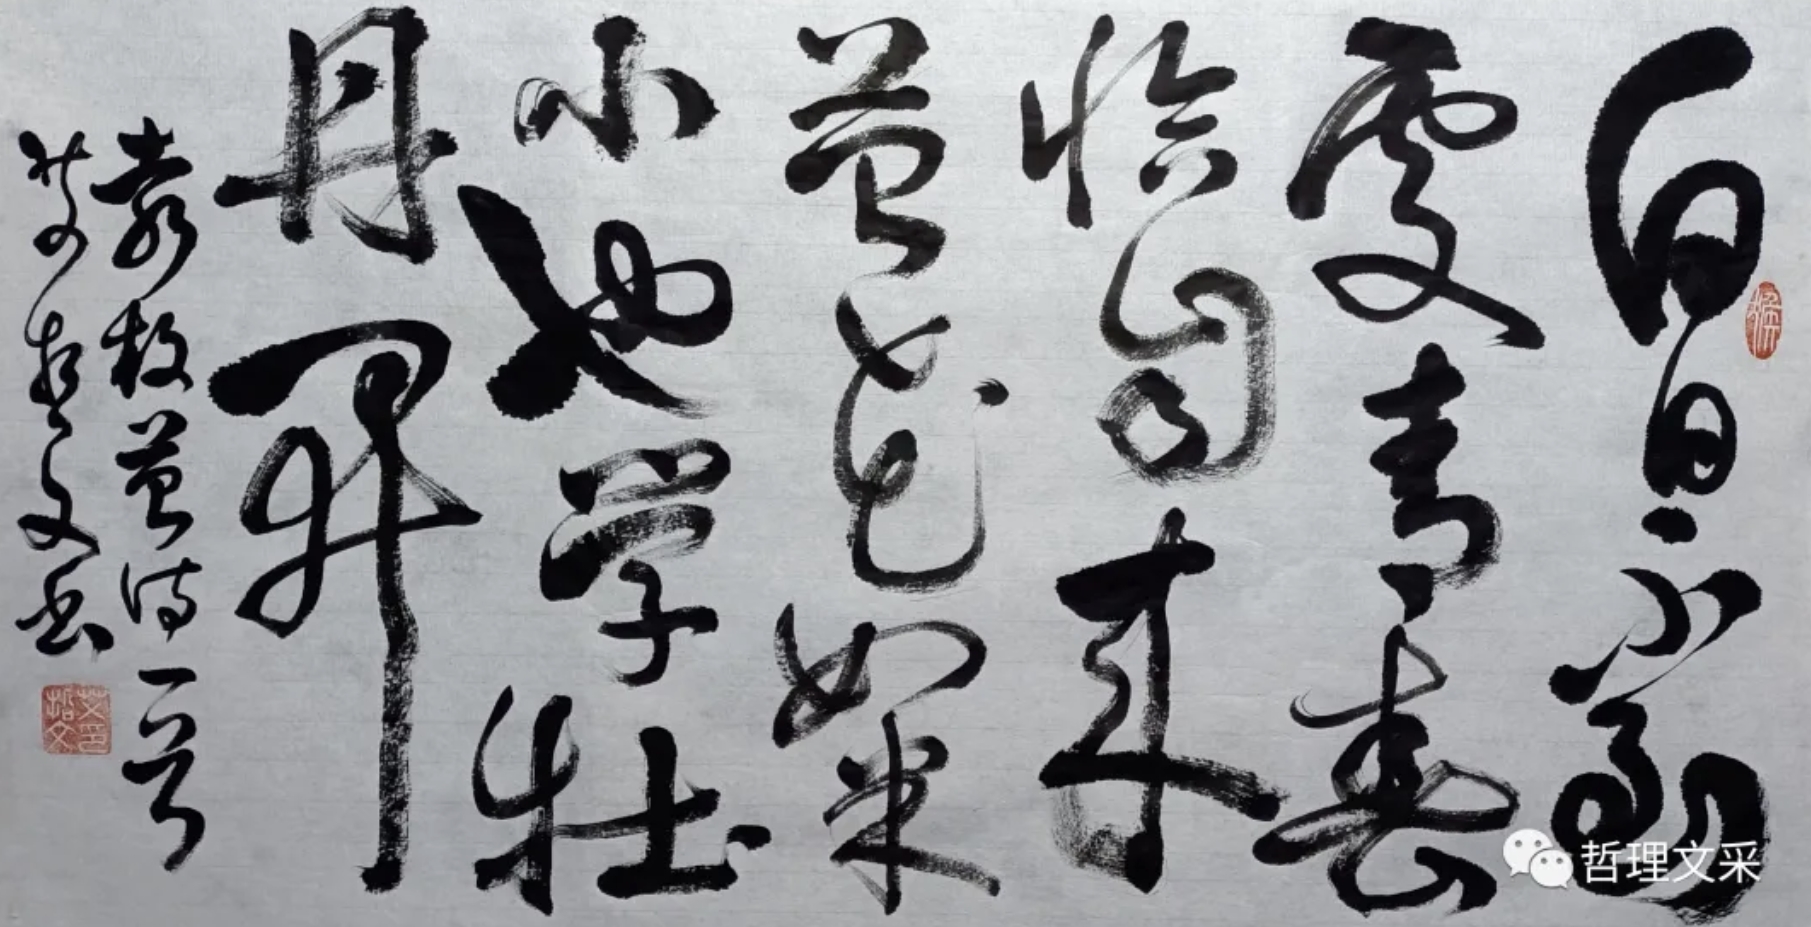 白日不到
处青春
恰自来
苔花如米
小也学牡
丹开
袁枚苔诗一首
艾哲文书
哲理文采